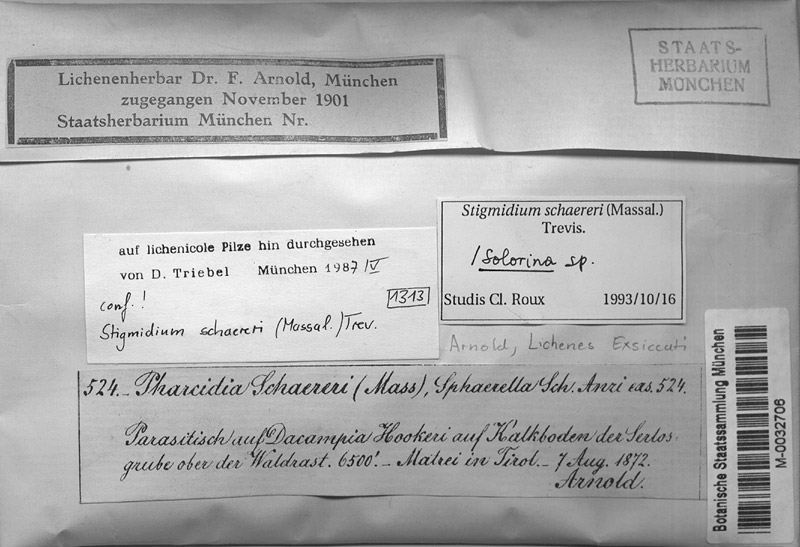 Lichenenherbar Dr. F. Arnold, München
zugegangen November 1901
Staatsherbarium München Nr.
STAATS-
HERBARIUM
MÜNCHEN
auf lichenicole Pilze hin durchgesehen
von D. Triebel München 1987 IV
conf.! 1313
Stigmidium schaereri (Massal.) Trev.
Stigmidium schaereri (Massal.)
Trevis.
/ Solorina sp.
Studis Cl. Roux 1993/10/16
Arnold, Lichenes Exsiccati
524. Pharcidia Schaereri (Mass), Sphaerella Sch. Anzi exs. 524.
Parasitisch auf Dacampia Hookeri auf Kalkboden der Serlos-
grube ober der Waldrast. 6500'. – Matrei in Tirol. – 7 Aug. 1872.
Arnold.
Botanische Staatssammlung München
M-0032706